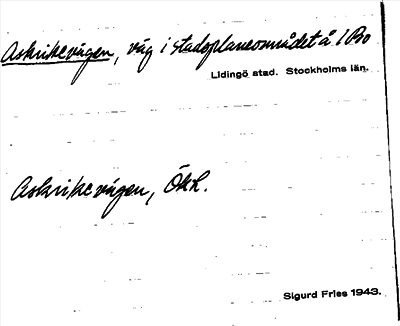 Askrikevägen, väg i stadsplaneområdet å 1 Bo
Lidingö stad. Stockholms län.
Askrikevägen, Ökh.
Sigurd Fries 1943.